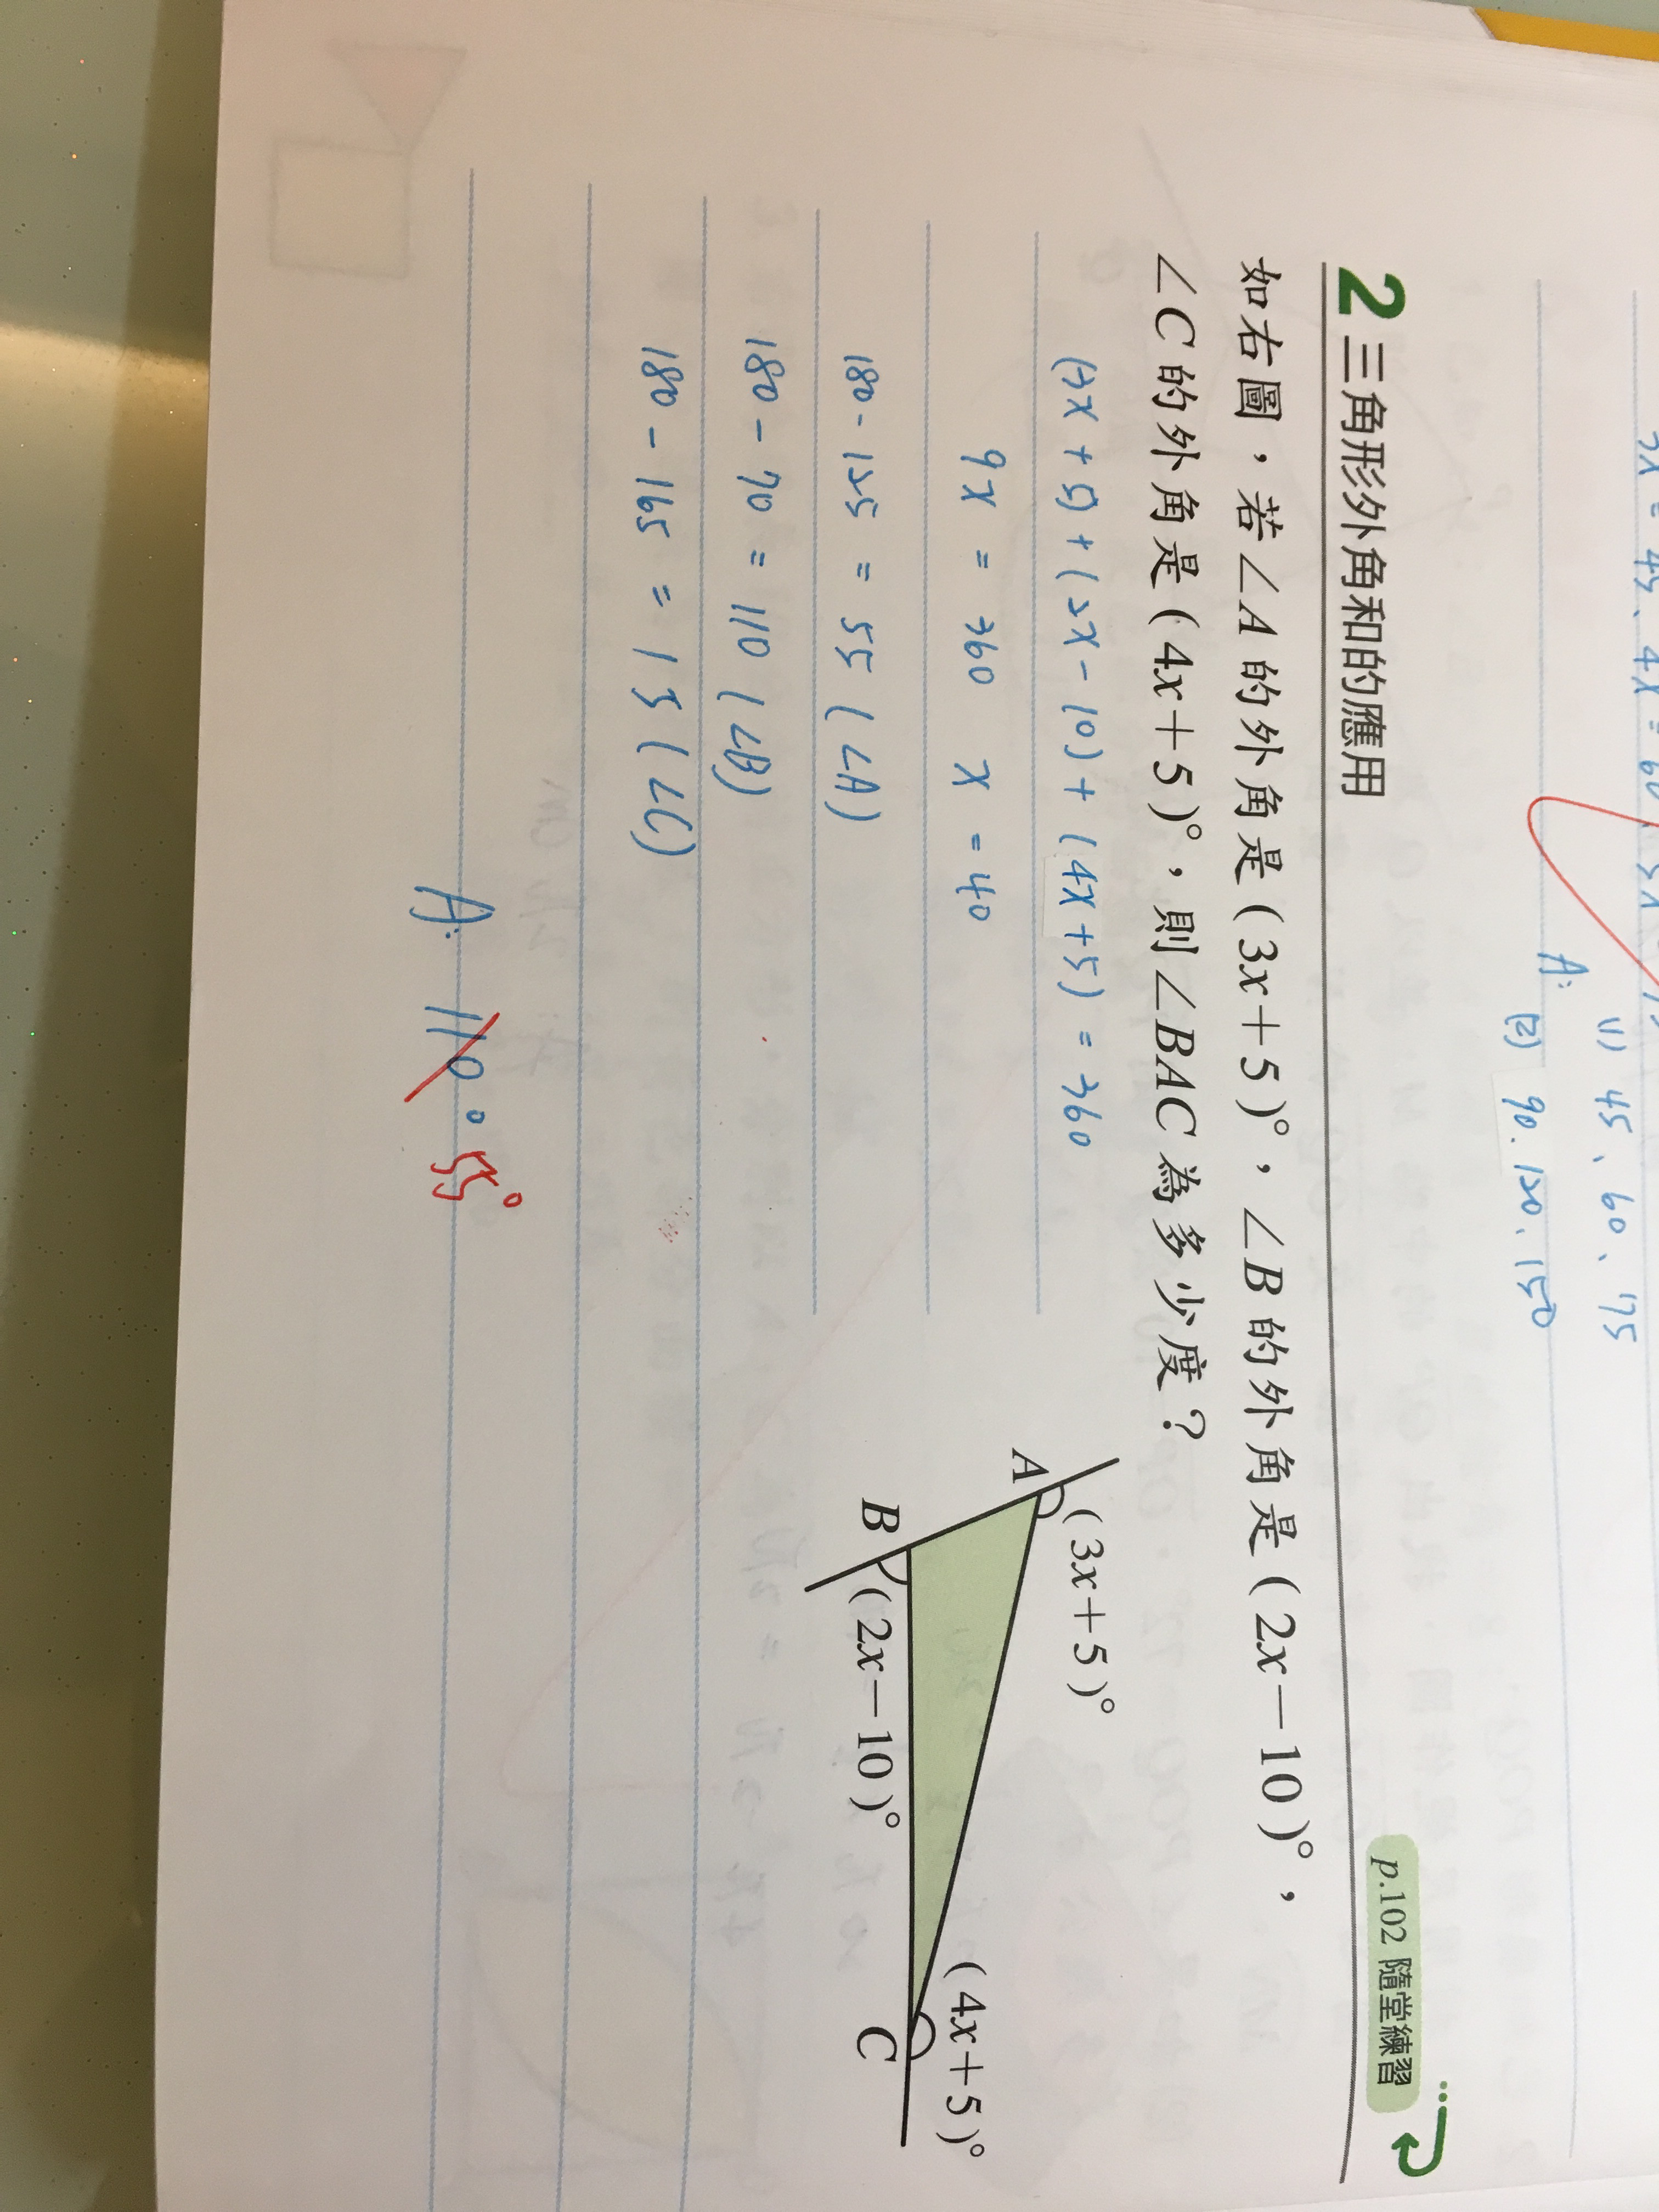 3x = 45、4x = 60、5x
A: (1) 45、60、75
(2) 90、120、150
2 三角形外角和的應用
p.102 隨堂練習
如右圖，若∠A的外角是(3x＋5)°，∠B的外角是(2x－10)°，
∠C的外角是(4x＋5)°，則∠BAC為多少度？
(3x + 5) + (2x - 10) + (4x + 5) = 360
9x = 360 x = 40
180 - 125 = 55 (∠A)
180 - 70 = 110 (∠B)
180 - 165 = 15 (∠C)
A: 110° 55°
A
(3x＋5)°
B
(2x－10)°
(4x＋5)°
C